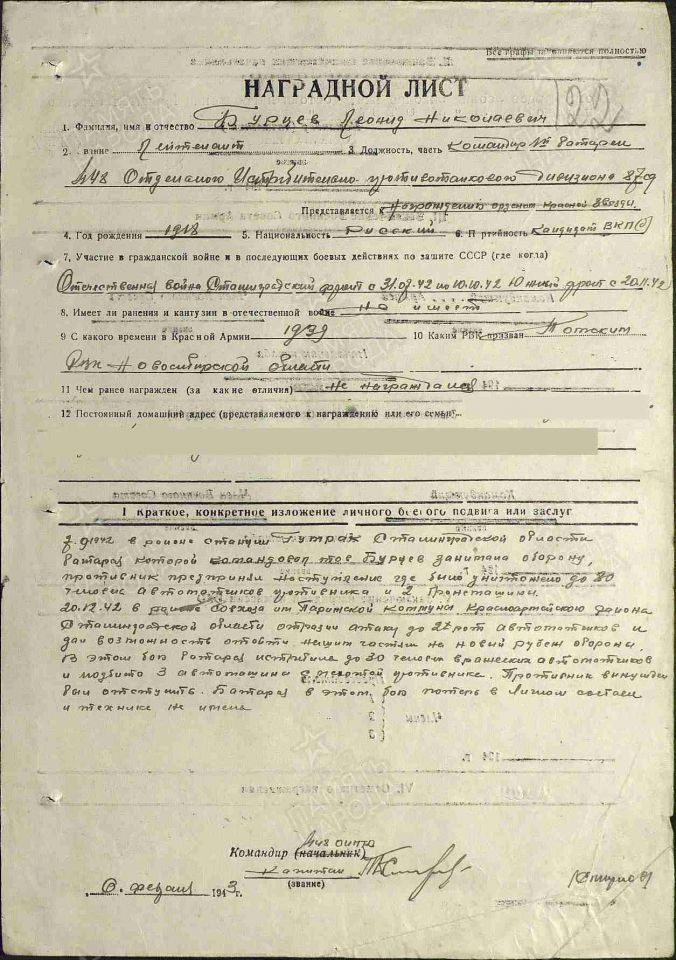 Все графы заполняются полностью
НАГРАДНОЙ ЛИСТ
122
1. Фамилия, имя и отчество Бурцев Леонид Николаевич
2. звание Лейтенант 3. Должность, часть Командир батареи
448 Отдельного Истребительно-противотанкового дивизиона 87 сд
Представляется к Награждению орденом Красной Звезды
4. Год рождения 1918 5. Национальность Русский 6. Партийность Кандидат ВКП(б)
7. Участие в гражданской войне и в последующих боевых действиях по защите СССР (где когда)
Отечественная война Сталинградский фронт с 31.07.42 по 10.10.42 Южный фронт с 20.11.42
8. Имеет ли ранения и контузии в отечественной войне Не имеет
9 С какого времени в Красной Армии 1939 10 Каким РВК призван
РВК Новосибирской области
11 Чем ранее награжден (за какие отличия) Не награждался
12 Постоянный домашний адрес (представляемого к награждению или его семьи)
I Краткое, конкретное изложение личного боевого подвига или заслуг
1942 в районе станции Сталинградской области
батарея которой командовал тов Бурцев занимала оборону,
противник предпринял наступление где было уничтожено до 80
человек автоматчиков противника и 2 бронемашины.
20.12.42 в районе Совхоза им Парижской Коммуны Красноармейского района
Сталинградской области отразил атаку до 2х рот автоматчиков и
дал возможность отойти нашим частям на новый рубеж обороны.
В этом бою батарея истребила до 30 человек вражеских автоматчиков
и подбито 3 автомашины с пехотой противника. Противник вынужден
был отступить. Батарея в этом бою потерь в личном составе
и технике не имела
448 оиптд
Командир (начальник)
Капитан
(звание)
6. февраля 1943 г.
(Смирнов)